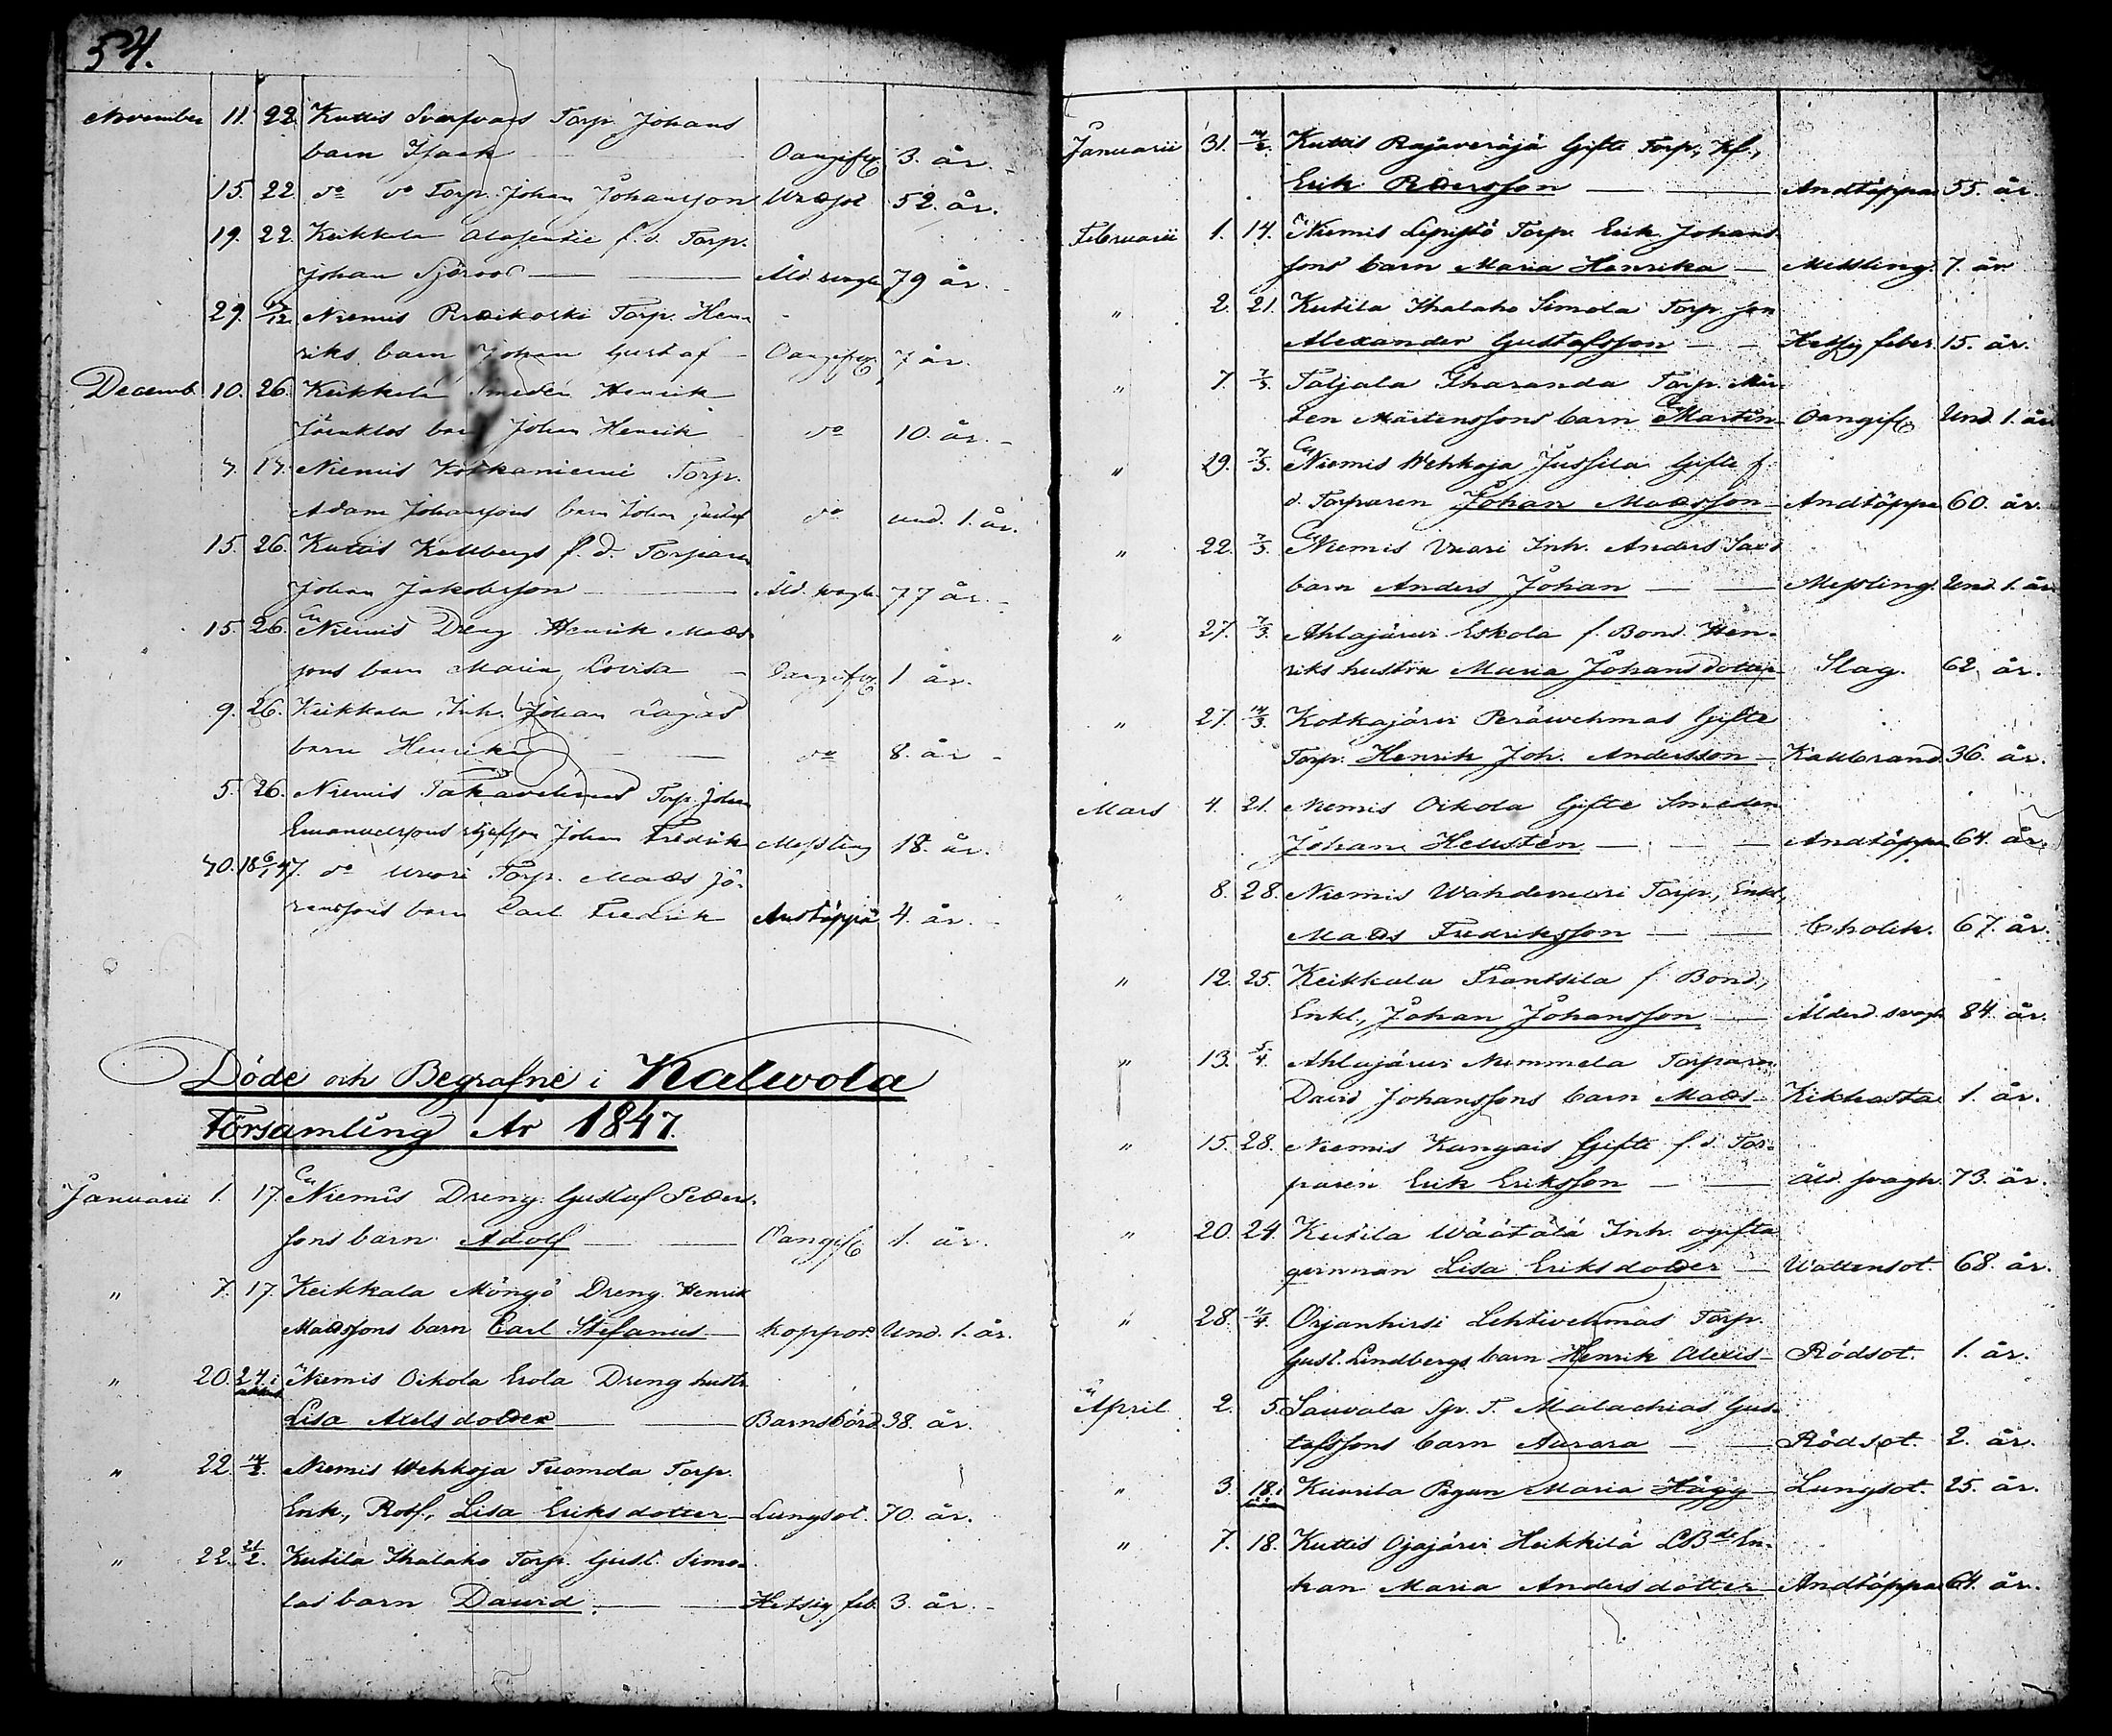 54.
November 11. 22. Kuttis Svarfvars Torp. Johans
barn Isaak Oangifvet 3. år.
15. 22. do do Torp. Johan Johansson 52. år.
19. 22. Keikkala f. d. Torp.
Johan Sjöroos Åld. svaghet 79 år.
29. Niemis Torp. Hen-
riks barn Johan Gustaf Oangifvet 7 år.
Decemb. 10. 26. Keikkala Smeden Henrik
barn Johan Henrik do 10. år.
17. Niemis Kotkaniemi Torp.
Adam Johanssons barn Johan Gustaf do und. 1. år.
15. 26. Kuttis Kallbergs f. d. Torparen
Johan Jakobsson Åld. svagh. 77 år.
15. 26. Niemis Dreng Henrik Mads-
sons barn Maria Lovisa Oangifvet 1 år.
9. 26. Keikkala Inh. Johan Lagus
barn Henrika do 8. år
5. 26. Niemis Takavehmas Torp. Johan
Emanuelssons styfson Johan Fredrik Messling 18. år.
do Vuori Torp. Mads Jö-
ranssons barn Carl Fredrik Andtäppa 4. år.
Döde och Begrafne i Kalwola
Församling År 1847.
Januarii 1. 17. Niemis Dreng. Gustaf Peders-
sons barn Adolf Oangifv 1. år.
" 7. 17. Keikkala Möngö Dreng. Henrik
Madssons barn Carl Stefanus koppor. Und. 1. år.
" 20. 24. i Niemis Oikola Erola Dreng hustr.
Lisa Axelsdotter Barnsbörd 38. år.
" 22. 14/2. Niemis Wehkoja Tuomola Torp.
Enk., Rotf., Lisa Eriksdotter Lungsot. 70. år.
" 22. 21/2. Kutila Ihalaho Torp. Gust. Simo-
las barn Dawid. Hetsig feb. 3. år.
Januarii 31. 14/2. Kuttis Rajaveräjä Gifte Torp., Kf.,
Erik Pedersson Andtäppa 55. år.
Februarii 1. 14. Niemis Lepistö Torp. Erik Johans-
sons barn Maria Henrika Messling. 7. år
" 2. 21. Kutila Ihalaho Simola Torp. son
Alexander Gustafsson Hetsig feber. 15. år.
" 7. 7/3. Taljala Iharanda Torp. Mår-
ten Mårtenssons barn Martin Oangifv Und. 1. år
" 29. 7/3. Niemis Wehkoja Jussila Gifte f.
d. Torparen Johan Madsson Andtäppa 60. år.
" 22. 7/3. Niemis Vuori Inh. Anders Sax's
barn Anders Johan Messling. Und. 1. år
" 27. 7/3. Ahlajärwi Eskola f. Bond. Hen-
riks hustru Maria Johansdotter Slag. 62. år.
" 27. 14/3. Kotkajärwi Peräwehmas Gifte
Torp. Henrik Joh. Andersson Kallbrand. 36. år.
Mars 4. 21. Niemis Oikola Gifte Smeden
Johan Hellstén Andtäppa 64. år.
" 8. 28. Niemis Wahdenvuori Torp., Enkl.,
Mads Fredriksson Cholik. 67. år.
" 12. 25. Keikkala Frantsila f. Bond.,
Enkl., Johan Johansson Ålderd. svagh. 84. år.
" 13. 5/4. Ahlajärwi Nummela Torparen
David Johanssons barn Mads Kikhosta 1. år.
" 15. 28. Niemis Kangais Gifte f. d. Tor-
paren Erik Eriksson Åld. svagh. 73. år.
" 20. 24. Kutila Wäätälä Inh. ogifta
qvinnan Lisa Eriksdotter Wattensot. 68. år.
" 28. 11/4. Orjanhirsi Lehtivehmas Torp.
Gust. Lindbergs barn Henrik Alexis Rödsot. 1. år.
April 2. 5. Sauvala Sp. T. Malachias Gus-
tafssons barn Aurora Rödsot. 2. år.
" 3. 18. Kuurila Pigan Maria Hägg Lungsot. 25. år.
" 7. 18. Kuttis Ojajärvi Heikkilä LBde En-
kan Maria Andersdotter Andtäppa 64. år.